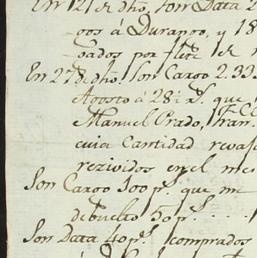 En 121 de dho, son Data 2
gos á Durango, y 18
sados por flete de
En 27 de dho. Son Cargo 2.33
Agosto á 28 i rs. que
Manuel Prado, Fran.
cuia Cantidad
rezividos en el me
Son Cargo 500 ps. que me
debuelto 50 ps. . . .
Son Data 40 ps. comprados